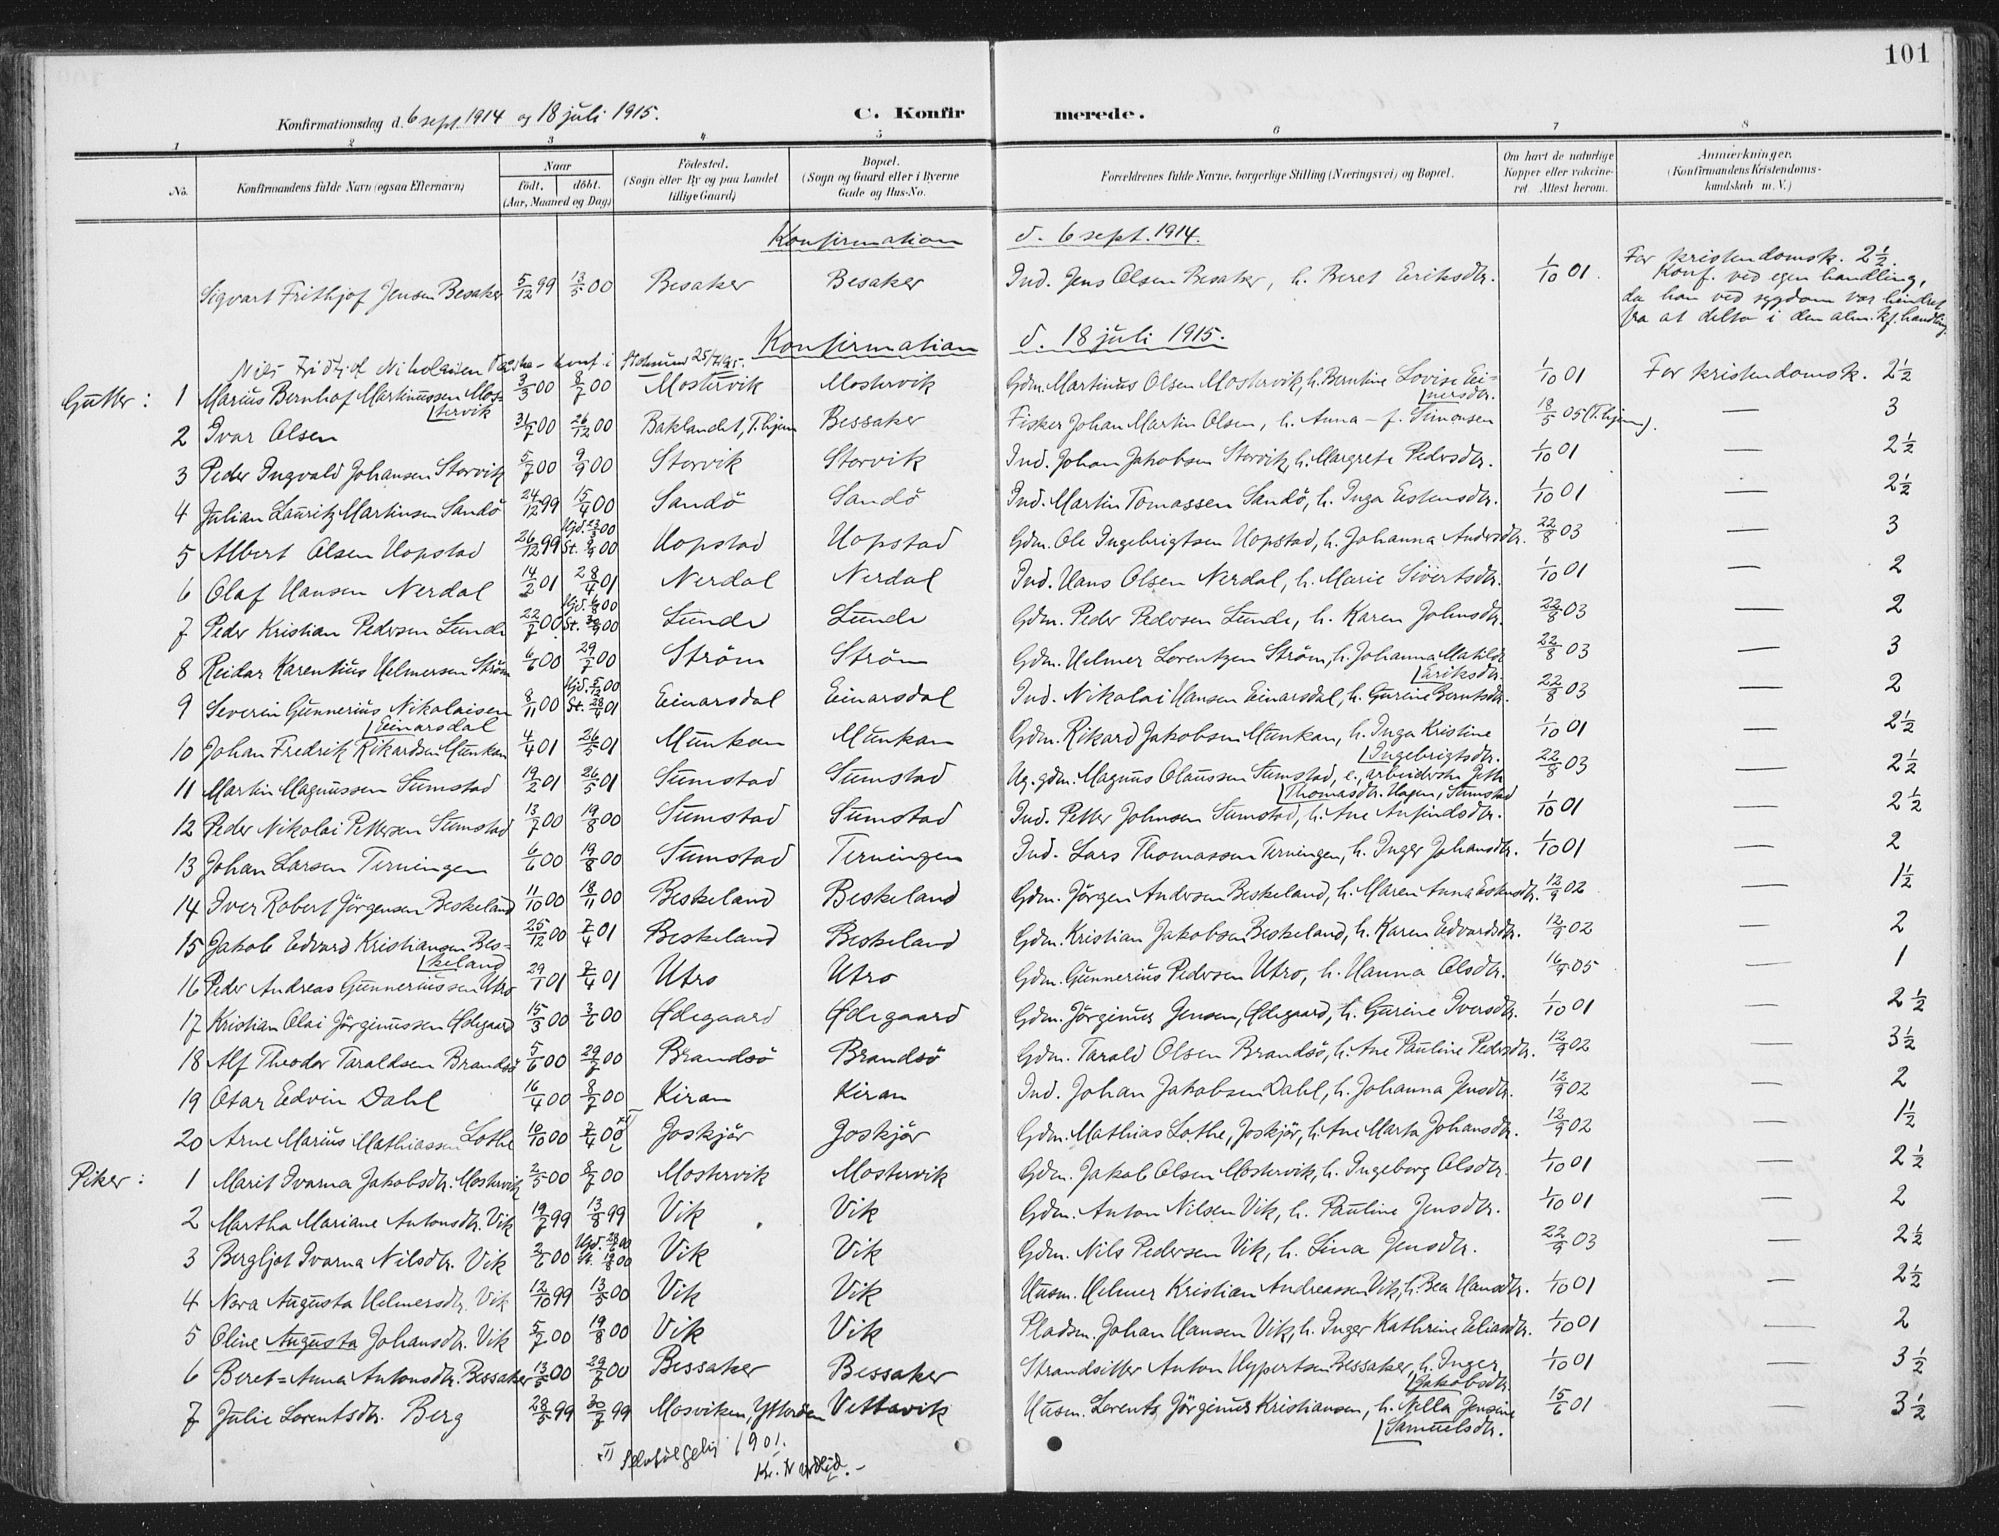 101
Konfirmationsdag d. 6 sept. 1914 og 18 juli 1915.
C. Konfirmerede.
1 2 3 4 5 6 7 8
No.
Konfirmandens fulde Navn (ogsaa Efternavn)
Naar
født. døbt.
(Aar, Maaned og Dag)
Fødested.
(Sogn eller By og paa Landet
tillige Gaard)
Bopæl.
(Sogn og Gaard eller i Byerne
Gade og Hus-No.
Forældrenes fulde Navne, borgerlige Stilling (Næringsvei) og Bopæl.
Om havt de naturlige
Kopper eller vaccine-
ret. Attest herom.
Anmærkninger.
(Konfirmandens Kristendoms-
kundskab m. V.)
Konfirmation d. 6 sept. 1914.
Sigvart Frithjof Jensen Besaker 5/12 99 13/5 00 Besaker Besaker Ind. Jens Olsen Besaker, h. Beret Eeriksdtr. 1/10 01. For kristendomsk. 2½.
Konf. ved egen handling,
da han ved sygdom var hindret
fra at delta i den alm. kf. handling
Konfirmation d. 18 juli 1915.
Nils Fridtjof Nikolaisen konf. i
Gutter: 1 Marius Bernhof Martinussen Mostervik 3/3 00 8/7 00 Mostervik Mostervik Gdm. Martinus Olsen Mostervik, h. Berntine Lovise Einersdtr. 1/10 01 For kristendomsk. 2½
2 Ivar Olsen 31/7 00 26/12 00 Baklandet, T.hjem Bessaker Fisker Johan Martin Olsen, h. Anna - f. Simonsen 18/5 05 (T.hjem). — 3
3 Peder Ingvald Johansen Storvik 5/7 00 9/9 00 Storvik Storvik Ind. Johan Jakobsen Storvik, h. Margrete Pedersdtr. 1/10 01 — 2½
4 Julian Lauritz Martinsen Sandö 24/12 99 15/4 00 Sandö Sandö Ind. Martin Tomassen Sandö, h. Inga Eestensdtr. 1/10 01 — 2½
5 Albert Olsen Hopstad 26/12 99 Hjd. 00 St. 00 Hopstad Hopstad Gdm. Ole Ingebrigtsen Hopstad, h. Johanna Andersdtr. 22/8 03 — 3
6 Olaf Hansen Nerdal 14/2 01 28/4 01 Nerdal Nerdal Ind. Hans Olsen Nerdal, h. Marie Sivertsdtr. 1/10 01 — 2
7 Peder Kristian Pedersen Sunde 22/7 00 Hjd. 6/8 00 St. 30/9 00 Sunde Sunde Gdm. Peder Pedersen Sunde, h. Karen Johnsdtr. 22/8 03 — 2
8 Reidar Karentius Helmersen Ström 6/6 00 29/7 00 Ström Ström Gdm. Helmer Lorentzen Ström, h. Johanna Matilde Eriksdtr. 22/8 03 — 3
9 Severin Gunnerius Nikolaisen Einarsdal 8/11 00 Hjd. 5/12 00 St. 28/4 01 Einarsdal Einarsdal Ind. Nikolai Hansen Einarsdal, h. Gurine Berntsdtr. 22/8 03 — 2
10 Johan Fredrik Rikardsen Munkan 4/4 01 26/5 01 Munkan Munkan Gdm. Rikard Jakobsen Munkan, h. Inga Kristine Ingebrigtsdtr. 1/10 01 — 2½
11 Martin Magnussen Sumstad 19/2 01 26/5 01 Sumstad Sumstad Ug. gdm. Magnus Olaussen Sumstad, e., arbeiderske Thomasdtr. Hagen, Sumstad 22/8 03 — 2½
12 Peder Nikolai Pettersen Sumstad 13/7 00 19/8 00 Sumstad Sumstad Ind. Petter Johnsen Sumstad, h. Ane Anfindsdtr. 1/10 01 — 2½
13 Johan Larsen Terningen 6/6 00 19/8 00 Sumstad Terningen Ind. Lars Thomassen Terningen, h. Inger Johansdtr. 1/10 01 — 2
14 Iver Robert Jörgensen Beskeland 11/10 00 18/11 00 Beskeland Beskeland Gdm. Jörgen Andersen Beskeland, h. Maren Anna Estensdtr. 12/9 02 — 1½
15 Jakob Edvard Kristiansen Beskeland 25/12 00 7/4 01 Beskeland Beskeland Gdm. Kristian Jakobsen Beskeland, h. Karen Edvardsdtr. 12/9 02 — 2
16 Peder Andreas Gunneriussen Utro 29/1 01 7/4 01 Utro Utro Gdm. Gunnerius Pedersen Utro, h. Hanna Olsdtr. 16/9 05 — 1
17 Kristian Olai Jörginussen Ödegaard 15/3 00 3/6 00 Ödegaard Ödegaard Gdm. Jörginus Jensen, Ödegaard, h. Gurine Iversdtr. 1/10 01 — 2½
18 Alf Theodor Taraldsen Brandsö 5/6 00 29/7 00 Brandsö Brandsö Gdm. Tarald Olsen Brandsö, h. Ane Pauline Pedersdtr. 12/9 02 — 3½
19 Otar Edvin Dahl 16/4 00 8/7 00 Kiran Kiran Ind. Johan Jakobsen Dahl, h. Johanna Jensdtr. 12/9 02 — 2
20 Arne Marius Mathiassen Lothe 19/10 00 7/4 00 Joskjör Joskjör Gdm. Mathias Lothe, Joskjör, h. Ane Marta Johansdtr. 12/9 02 — 1½
Piker: 1 Marit Ivarna Jakobsdtr. Mostervik 2/5 00 8/7 00 Mostervik Mostervik Gdm. Jakob Olsen Mostervik, h. Ingeborg Olsdtr. 1/10 01 — 2½
2 Martha Mariane Antonsdtr. Vik 19/7 99 13/8 99 Vik Vik Gdm. Anton Nilsen Vik, h. Pauline Jensdtr. 1/10 01 — 2
3 Bergljot Ivarna Nilsdtr. Vik 2/6 00 Hjd. 00 St. 19/8 00 Vik Vik Gdm. Nils Pedersen Vik, h. Lina Jensdtr. 22/9 03 — 2½
4 Nora Augusta Helmersdtr. Vik 12/10 99 13/5 00 Vik Vik Husm. Helmer Kristian Andreassen Vik, h. Bea Hansdtr. 1/10 01 — 2½
5 Oline Augusta Johansdtr. Vik 5/7 00 19/8 00 Vik Vik Pladsm. Johan Hansen Vik, h. Inger Kathrine Eliasdtr. 1/10 01 — 2
6 Beret=Anna Antonsdtr. Bessaker 13/5 00 29/7 00 Bessaker Bessaker Strandsitter Anton Hypertsen Bessaker, h. Inger Jakobsdtr. 1/10 01 — 3½
7 Julie Lorentsdtr. Berg 28/5 99 30/7 99 Mosviken, Ytterøen Vettavik Husm. Lorents Jörginus Kristiansen, h. Nella Jensine Samuelsdtr. 15/6 01 — 3½
Selvfølgelig 1901.